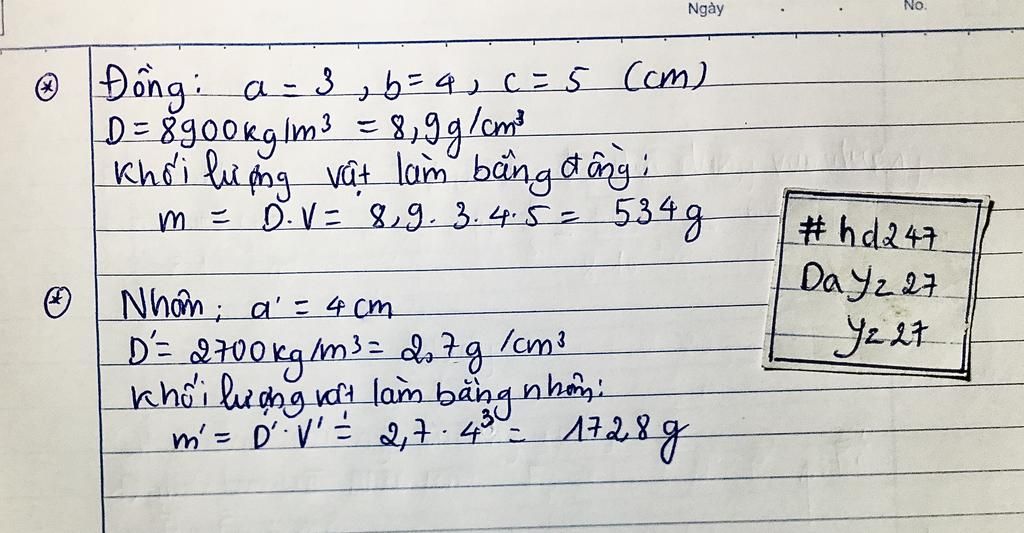 Ngày . . No.
Đồng: a = 3, b = 4, c = 5 (cm)
D = 8900kg/m³ = 8,9g/cm³
Khối lượng vật làm bằng đồng:
m = D.V = 8,9. 3.4.5 = 534g
Nhôm: a' = 4cm
D' = 2700kg/m³ = 2,7g/cm³
Khối lượng vật làm bằng nhôm:
m' = D'.V' = 2,7. 4³ = 172,8g
#hd247
DaYz27
Yz27